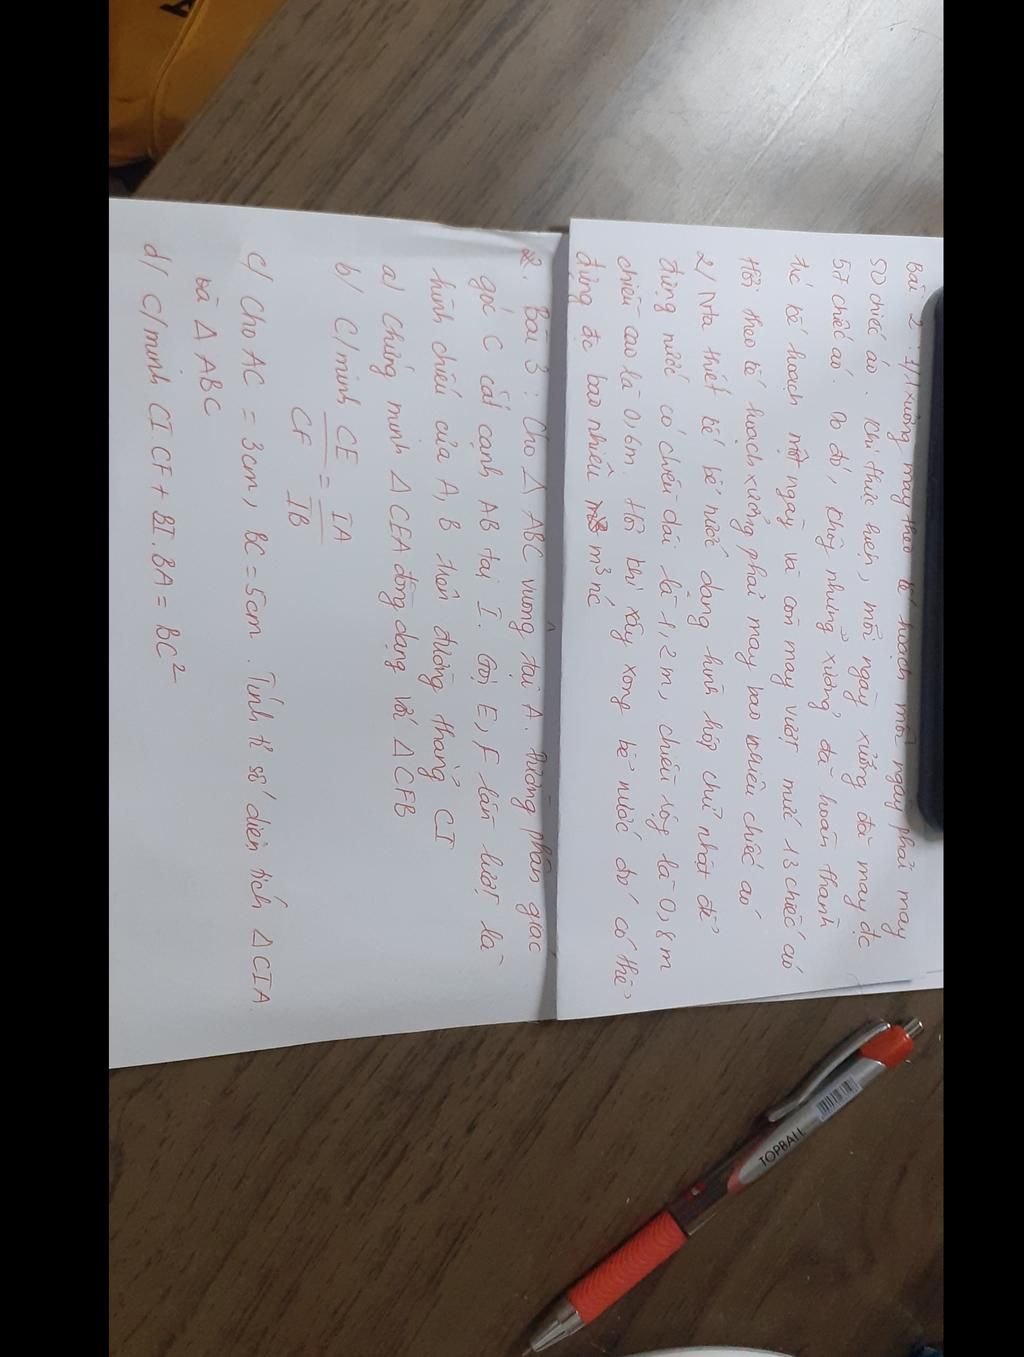 Bài 2: 1/1 xưởng may theo kế hoạch mỗi ngày phải may
50 chiếc áo. Khi thực hiện, mỗi ngày xưởng đã may đc
57 chiếc áo. Do đó, không những xưởng đã hoàn thành
trc kế hoạch một ngày và còn may vượt mức 13 chiếc áo
Hỏi theo kế hoạch xưởng phải may bao nhiêu chiếc áo
2/ Nta thiết kế bể nước dạng hình hộp chữ nhật để
đựng nước có chiều dài là 1,2 m, chiều rộng là 0,8 m
chiều cao là 0,6m. Hỏi khi xây xong bể nước đó có thể
đựng đc bao nhiêu m³ nc
Bài 3: Cho Δ ABC vuông tại A. Đường phân giác
góc C cắt cạnh AB tại I. Gọi E, F lần lượt là
hình chiếu của A, B trên đường thẳng CI
a/ Chứng minh Δ CEA đồng dạng với Δ CFB
b/ C/minh CE/CF = IA/IB
c/ Cho AC = 3cm, BC = 5cm. Tính tỉ số diện tích Δ CIA
và Δ ABC
d/ C/minh CI.CF + BI.BA = BC²
TOPBALL